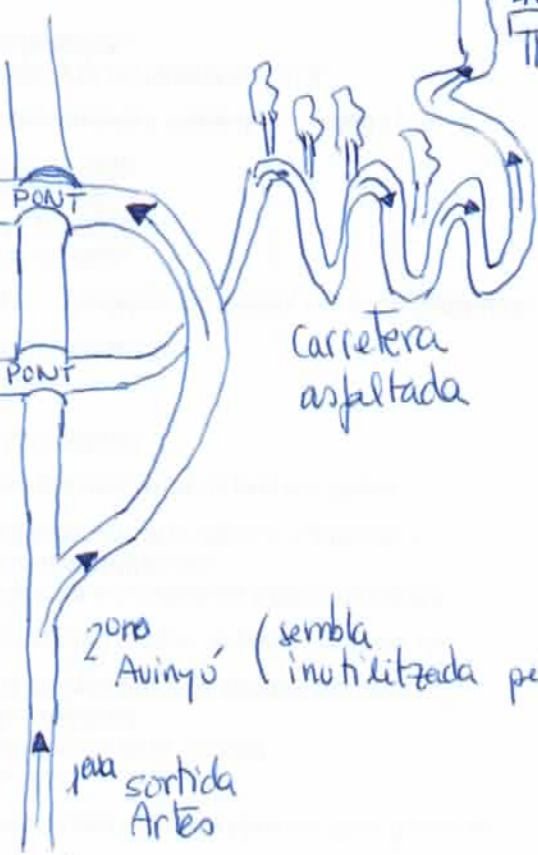 PONT
PONT
Carretera
asfaltada
2ona (sembla
Avinyó inutilitzada pe
1era sortida
Artés